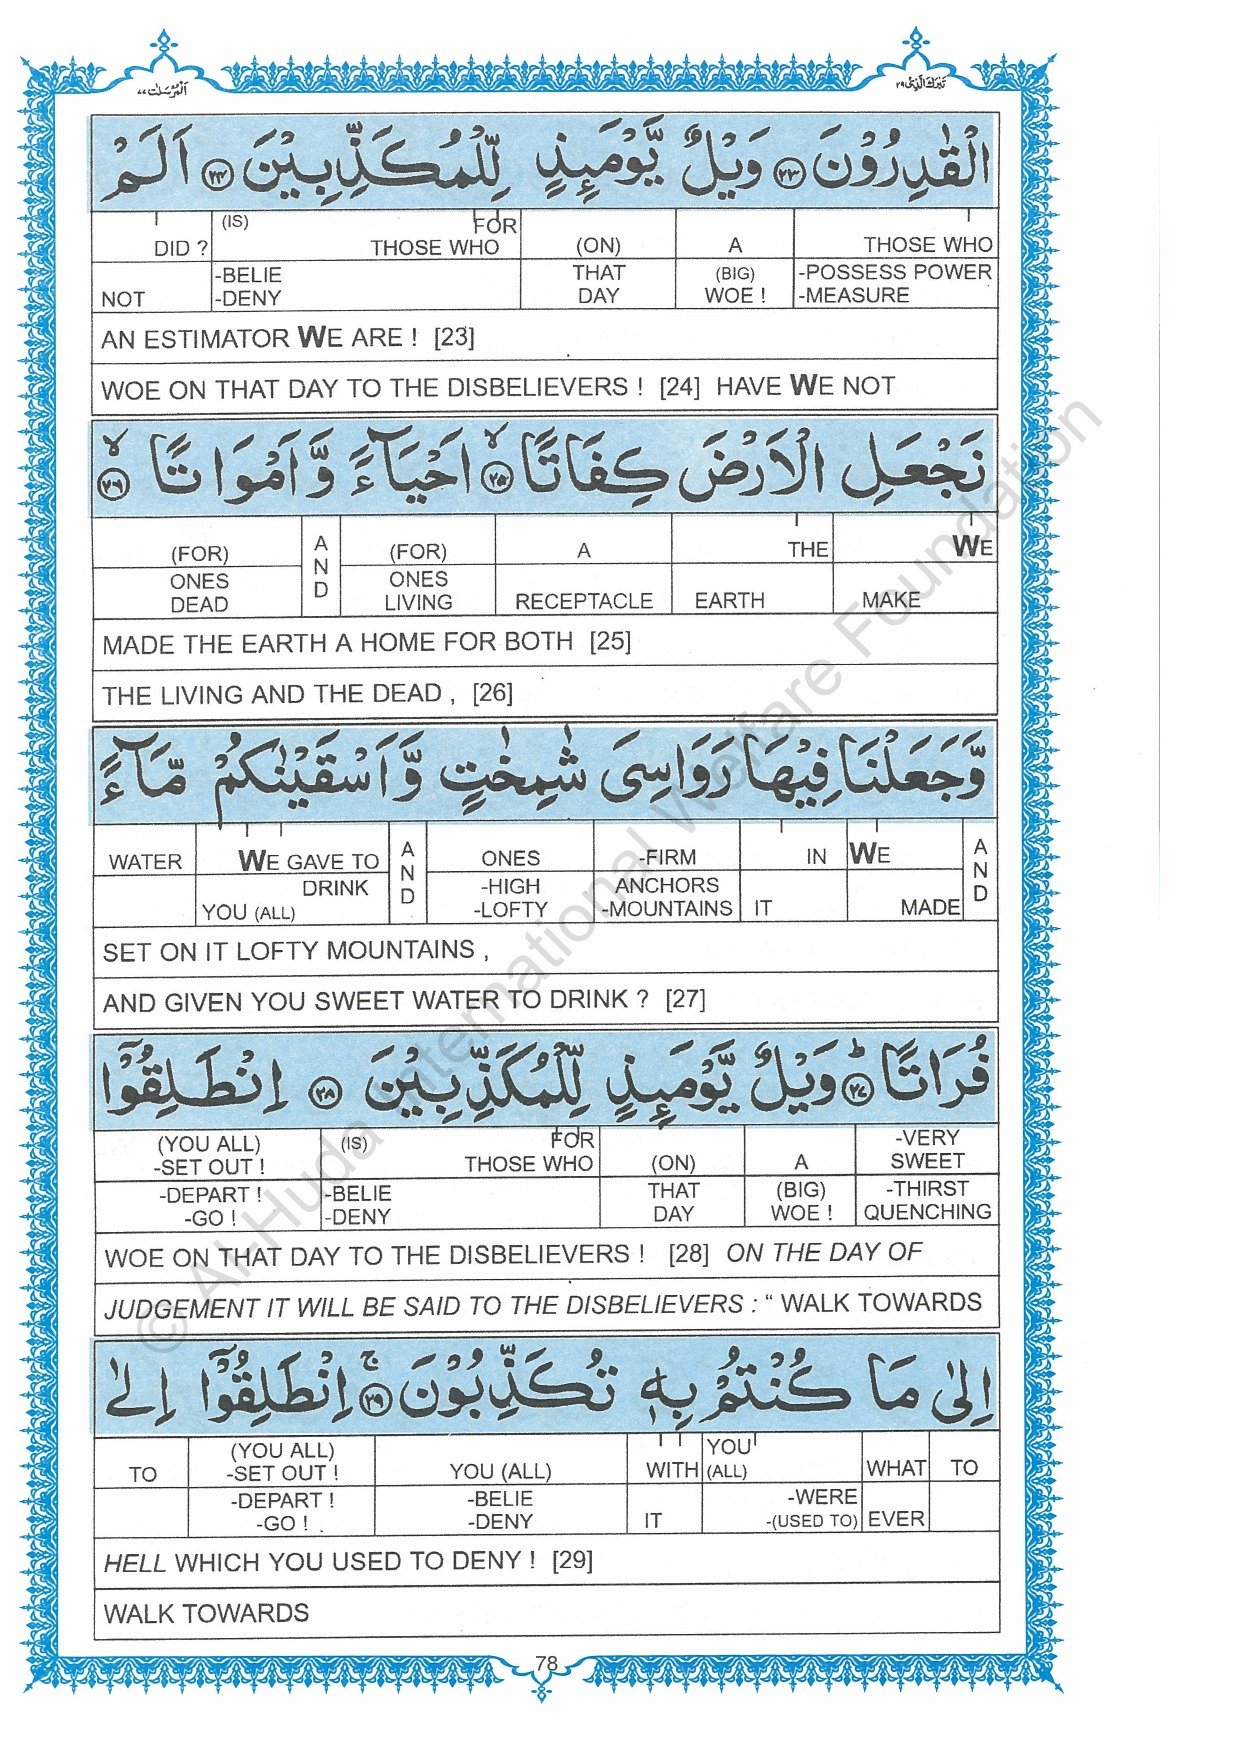 اَلْمُرْسَلٰت ٧٧
تَبٰرَكَ الَّذِیْ ٢٩
الْقٰدِرُوْنَ ٢٣ وَيْلٌ يَّوْمَىِٕذٍ لِّلْمُكَذِّبِيْنَ ٢٤ اَلَمْ
(IS) FOR
DID ? THOSE WHO (ON) A THOSE WHO
-BELIE THAT (BIG) -POSSESS POWER
NOT -DENY DAY WOE ! -MEASURE
AN ESTIMATOR WE ARE ! [23]
WOE ON THAT DAY TO THE DISBELIEVERS ! [24] HAVE WE NOT
نَجْعَلِ الْاَرْضَ كِفَاتًا ٢٥ لا اَحْيَآءً وَّاَمْوَاتًا ٢٦ لا
(FOR) AND (FOR) A THE WE
ONES ONES
DEAD LIVING RECEPTACLE EARTH MAKE
MADE THE EARTH A HOME FOR BOTH [25]
THE LIVING AND THE DEAD , [26]
وَّجَعَلْنَا فِيْهَا رَوَاسِیَ شٰمِخٰتٍ وَّاَسْقَيْنٰكُمْ مَّآءً
WATER WE GAVE TO AND ONES -FIRM IN WE AND
DRINK -HIGH ANCHORS
YOU (ALL) -LOFTY -MOUNTAINS IT MADE
SET ON IT LOFTY MOUNTAINS ,
AND GIVEN YOU SWEET WATER TO DRINK ? [27]
فُرَاتًا ٢٧ ط وَيْلٌ يَّوْمَىِٕذٍ لِّلْمُكَذِّبِيْنَ ٢٨ اِنْطَلِقُوْٓا
(YOU ALL) (IS) FOR -VERY
-SET OUT ! THOSE WHO (ON) A SWEET
-DEPART ! -BELIE THAT (BIG) -THIRST
-GO ! -DENY DAY WOE ! QUENCHING
WOE ON THAT DAY TO THE DISBELIEVERS ! [28] ON THE DAY OF
JUDGEMENT IT WILL BE SAID TO THE DISBELIEVERS : “ WALK TOWARDS
اِلٰى مَا كُنْتُمْ بِهٖ تُكَذِّبُوْنَ ٢٩ ج اِنْطَلِقُوْٓا اِلٰى
(YOU ALL) YOU
TO -SET OUT ! YOU (ALL) WITH (ALL) WHAT TO
-DEPART ! -BELIE -WERE
-GO ! -DENY IT -(USED TO) EVER
HELL WHICH YOU USED TO DENY ! [29]
WALK TOWARDS
78
© Al-Huda International Welfare Foundation